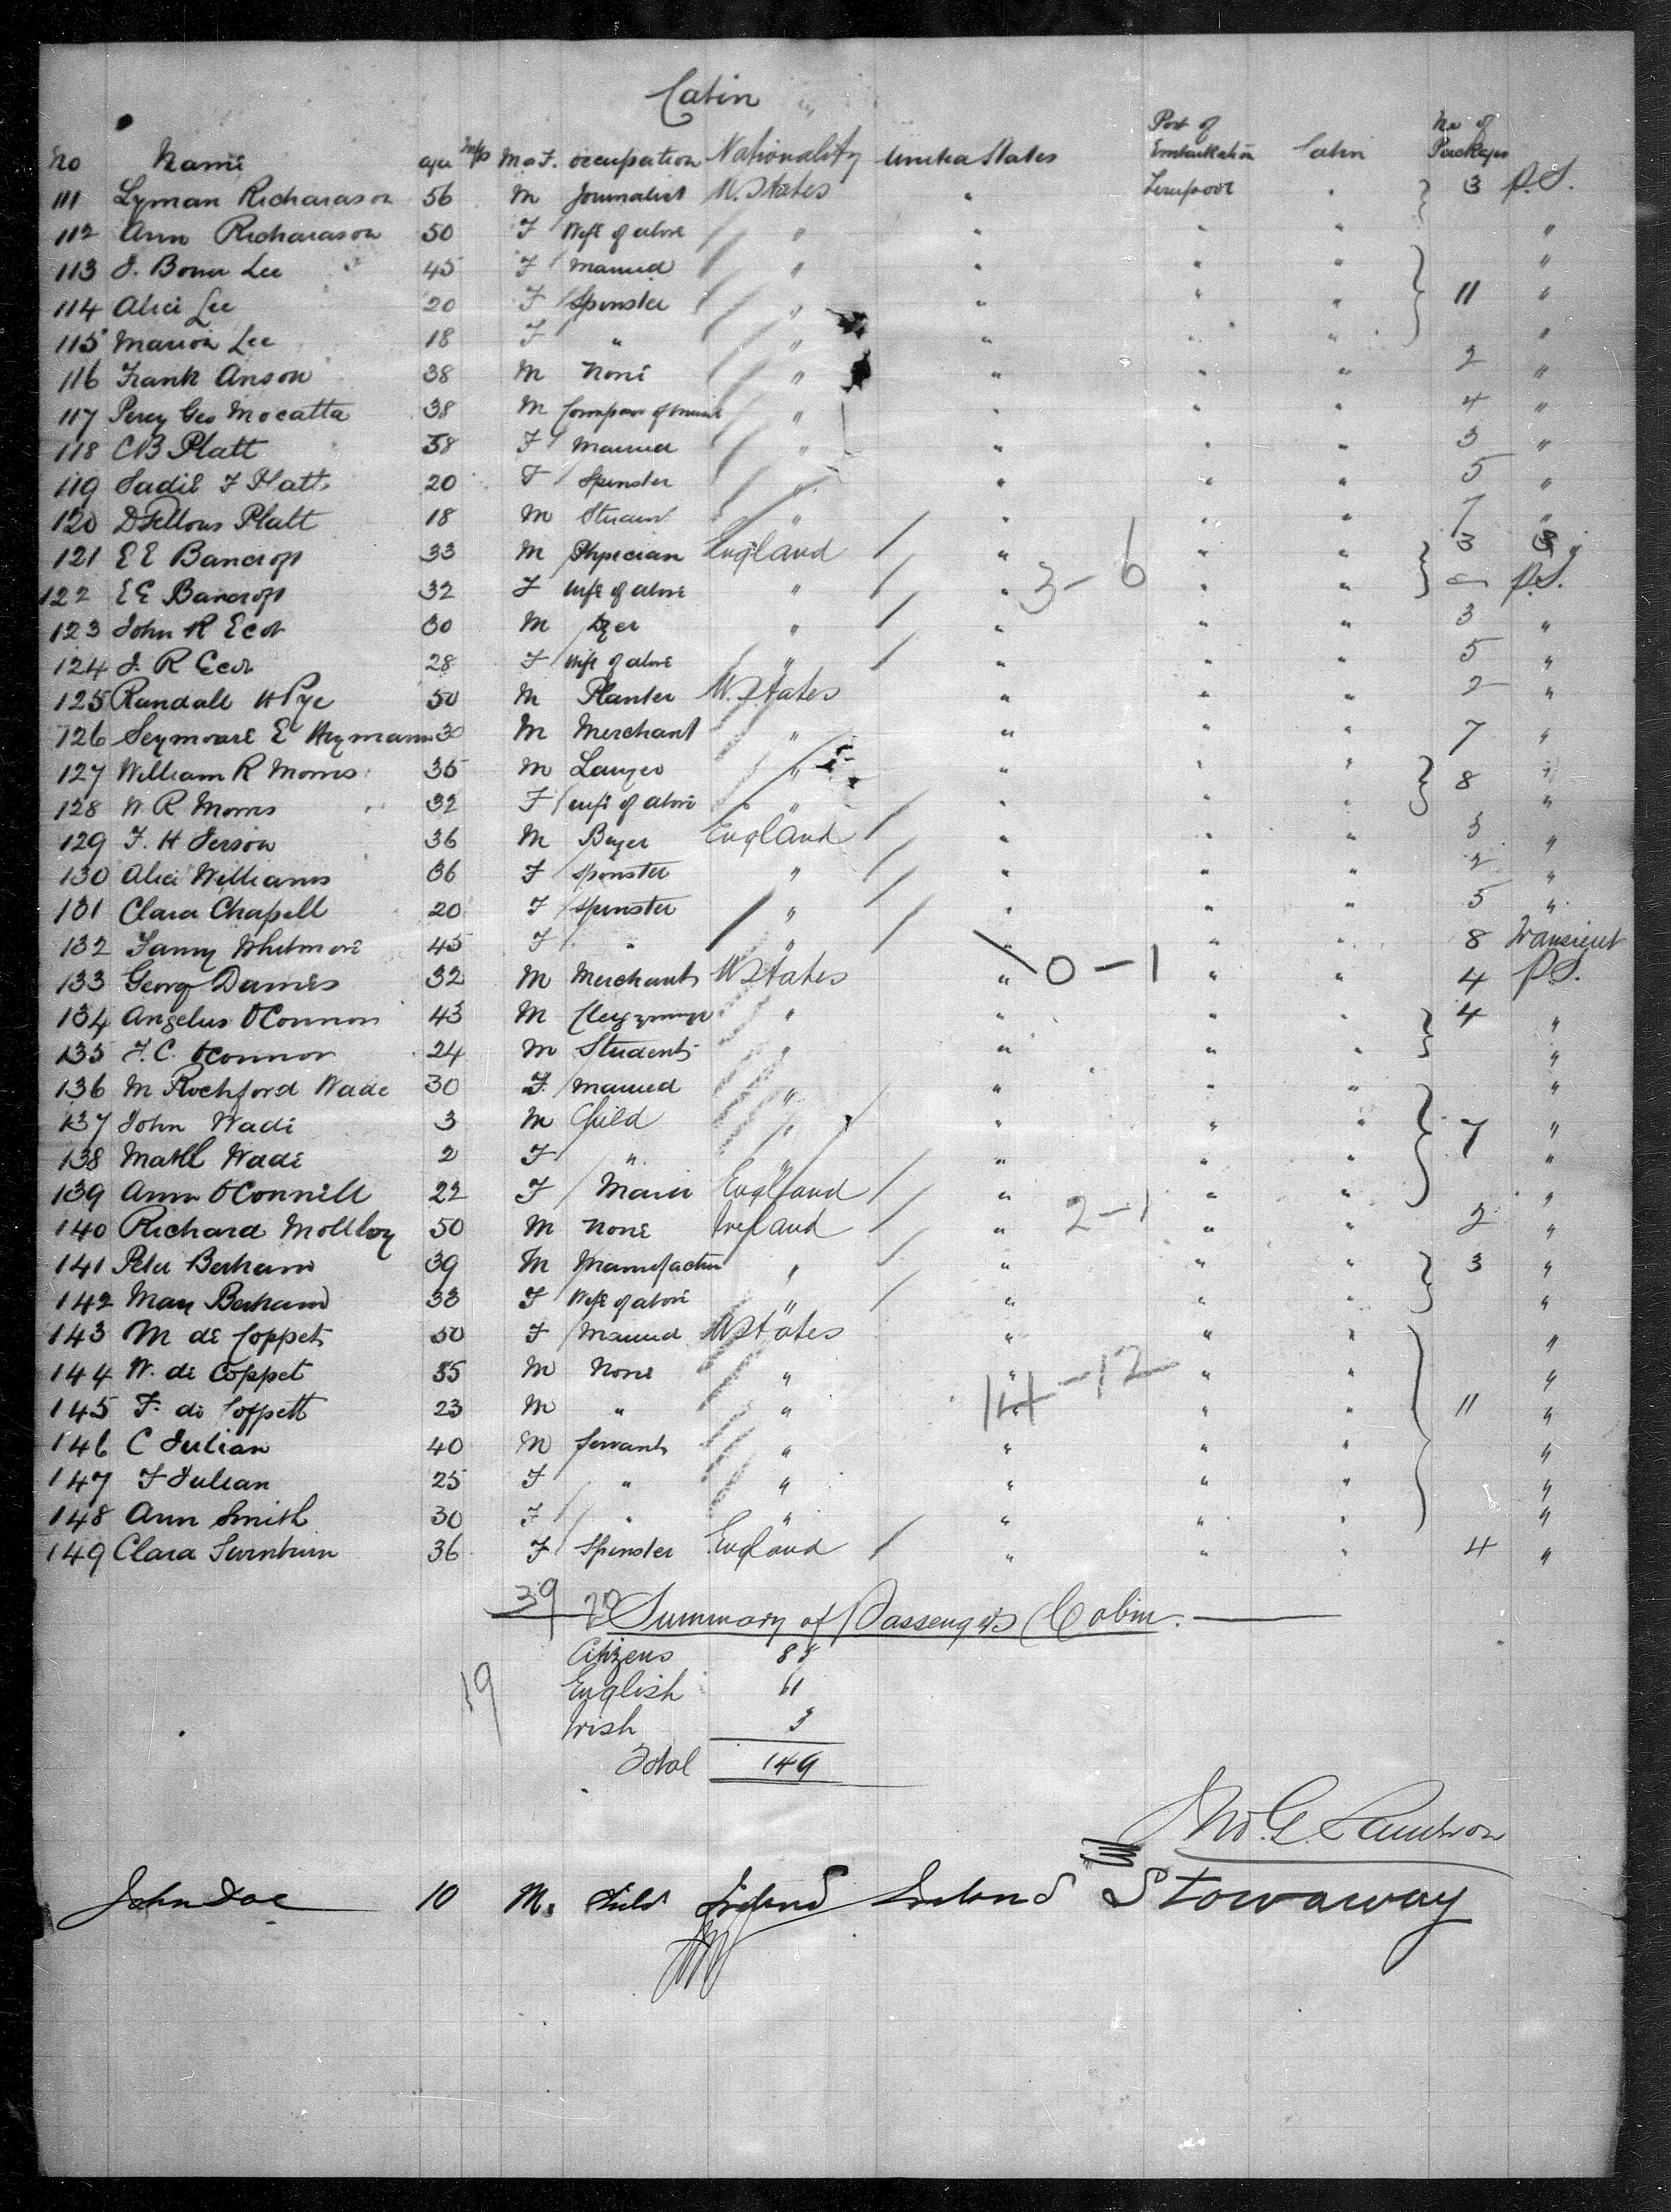 Cabin
No Name age M or F. occupation Nationality United States Port of Embarkation Cabin No of Packages
111 Lyman Richardson 56 M Journalist U. States " Liverpool " 3 P.S.
112 Ann Richardson 50 F Wife of above " " " " "
113 J. Bown Lee 45 F Married " " " " "
114 Alice Lee 20 F Spinster " " " " 11 "
115 Marion Lee 18 F " " " " " "
116 Frank Anson 38 M None " " " " 2 "
117 Percy Geo Mocatta 38 M " " " " 4 "
118 C B Platt 38 F Married " " " " 3 "
119 Sadie F Platt 20 F Spinster " " " " 5 "
120 D Fellows Platt 18 M Student " " " " 7 "
121 E E Bancroft 33 M Physician England / " " " 3
3 - 6
122 E E Bancroft 32 F wife of above " / " " " — P.S.
123 John R Ecob 30 M Dyer " / " " " 3 "
124 J. R Ecob 28 F Wife of above " / " " " 5 "
125 Randall H Pye 50 M Planter U. States " " " 2 "
126 Seymoure E Heymann 30 M Merchant " " " " 7 "
127 William R Morris 35 M Lawyer " " " " 8 "
128 W. R Morris 32 F wife of above " " " " "
129 F. H Jerson 36 M Buyer England / " " " 3 "
130 Alice Williams 36 F Spinster " / " " " 2 "
131 Clara Chapell 20 F Spinster " / " " " 5 "
132 Fanny Whitmore 45 F " " / " " " 8 Transient
133 Georg Damies 32 M Merchant U States " 0 - 1 " " 4 P.S.
134 Angelus O'Connor 43 M Clergyman " " " " 4 "
135 F. C. O'Connor 24 M Student " " " " "
136 M Rochford Wade 30 F. Married " " " " "
137 John Wade 3 M Child " " " " 7 "
138 Mabll Wade 2 F " " " " " "
139 Ann O'Connill 22 F Maid England / " " " "
140 Richard Molloy 50 M None Ireland / " 2 - 1 " " 2 "
141 Peter Bertram 39 M Manufactur " / " " " 3 "
142 Mary Bertram 33 F Wife of above " / " " " "
143 M de Coppet 50 F Married U States " " " "
144 W. de Coppet 35 M None " " " " "
14 - 12
145 F. de Coppett 23 M " " " " " 11 "
146 C Julian 40 M Servant " " " " "
147 F Julian 25 F " " " " " "
148 Ann Smith 30 F " " " " " "
149 Clara Swinburn 36 F Spinster England / " " " 4 "
39 20
Summary of Passengers Cabin.
Citizens 85
English 61
Irish 3
19
Total 149
John Doe 10 M. Child Ireland Ireland Stowaway